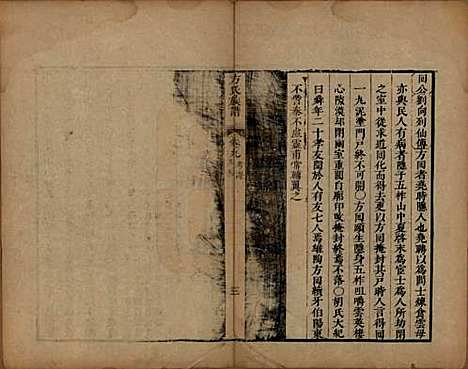 回公劉向列仙傳方回者堯時隱人也堯聘以爲閭士鍊食雲母
亦與民人有病者隱于五柞山中夏啓末爲宦士爲人所劫閉
之室中從求道回化而得去更以方回掩封其戸時人言得回
一丸泥塗門戸終不可開〇方回頤生隱身五柞咀嚼雲英棲
心隙漠劫閉幽室重關自廓印改掩封終焉不落〇胡氏大紀
曰舜年二十孝友聞於人有友七人焉雄陶方回續牙伯陽東
不訾秦不虛靈甫常輔翼之
方氏族譜
卷九
三